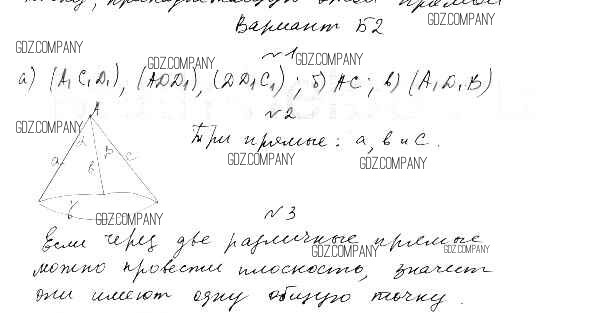 Вариант Б2
GDZ.COMPANY
GDZ.COMPANY
№1
GDZ.COMPANY
GDZ.COMPANY
а) (A₁C₁D₁), (ADD₁), (DD₁C₁); б) AC; в) (A₁D₁B)
GDZ.COMPANY
№2
A
α
a
в
β
c
γ
Три прямые: а, в и с.
GDZ.COMPANY
GDZ.COMPANY
GDZ.COMPANY
№3
Если через две различные прямые
GDZ.COMPANY
GDZ.COMPANY
можно провести плоскость, значит
они имеют одну общую точку.